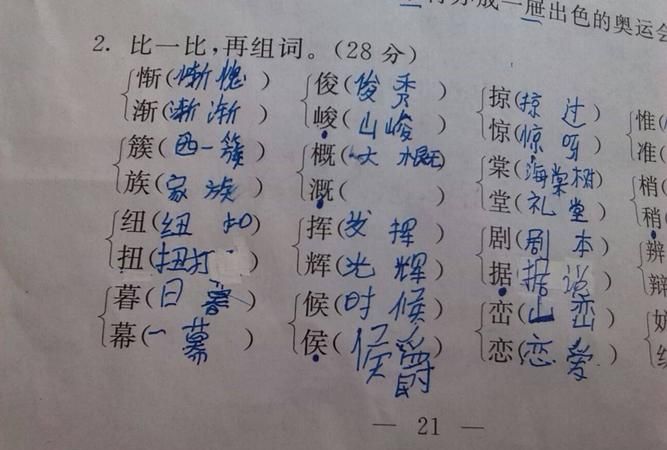 一屉出色的奥运会
2. 比一比，再组词。（28分）
惭(惭愧) 俊(俊秀) 掠(掠过) 惟(
渐(渐渐) 峻(山峻) 惊(惊呀) 准(
簇(一簇) 概(大概) 棠(海棠树) 梢(
族(家族) 溉( ) 堂(礼堂) 稍(
纽(纽扣) 挥(发挥) 剧(剧本) 辨
扭(扭打) 辉(光辉) 据(据说) 辩
暮(日暮) 候(时候) 峦(山峦)
幕(一幕) 侯(侯爵) 恋(恋爱)
— 21 —